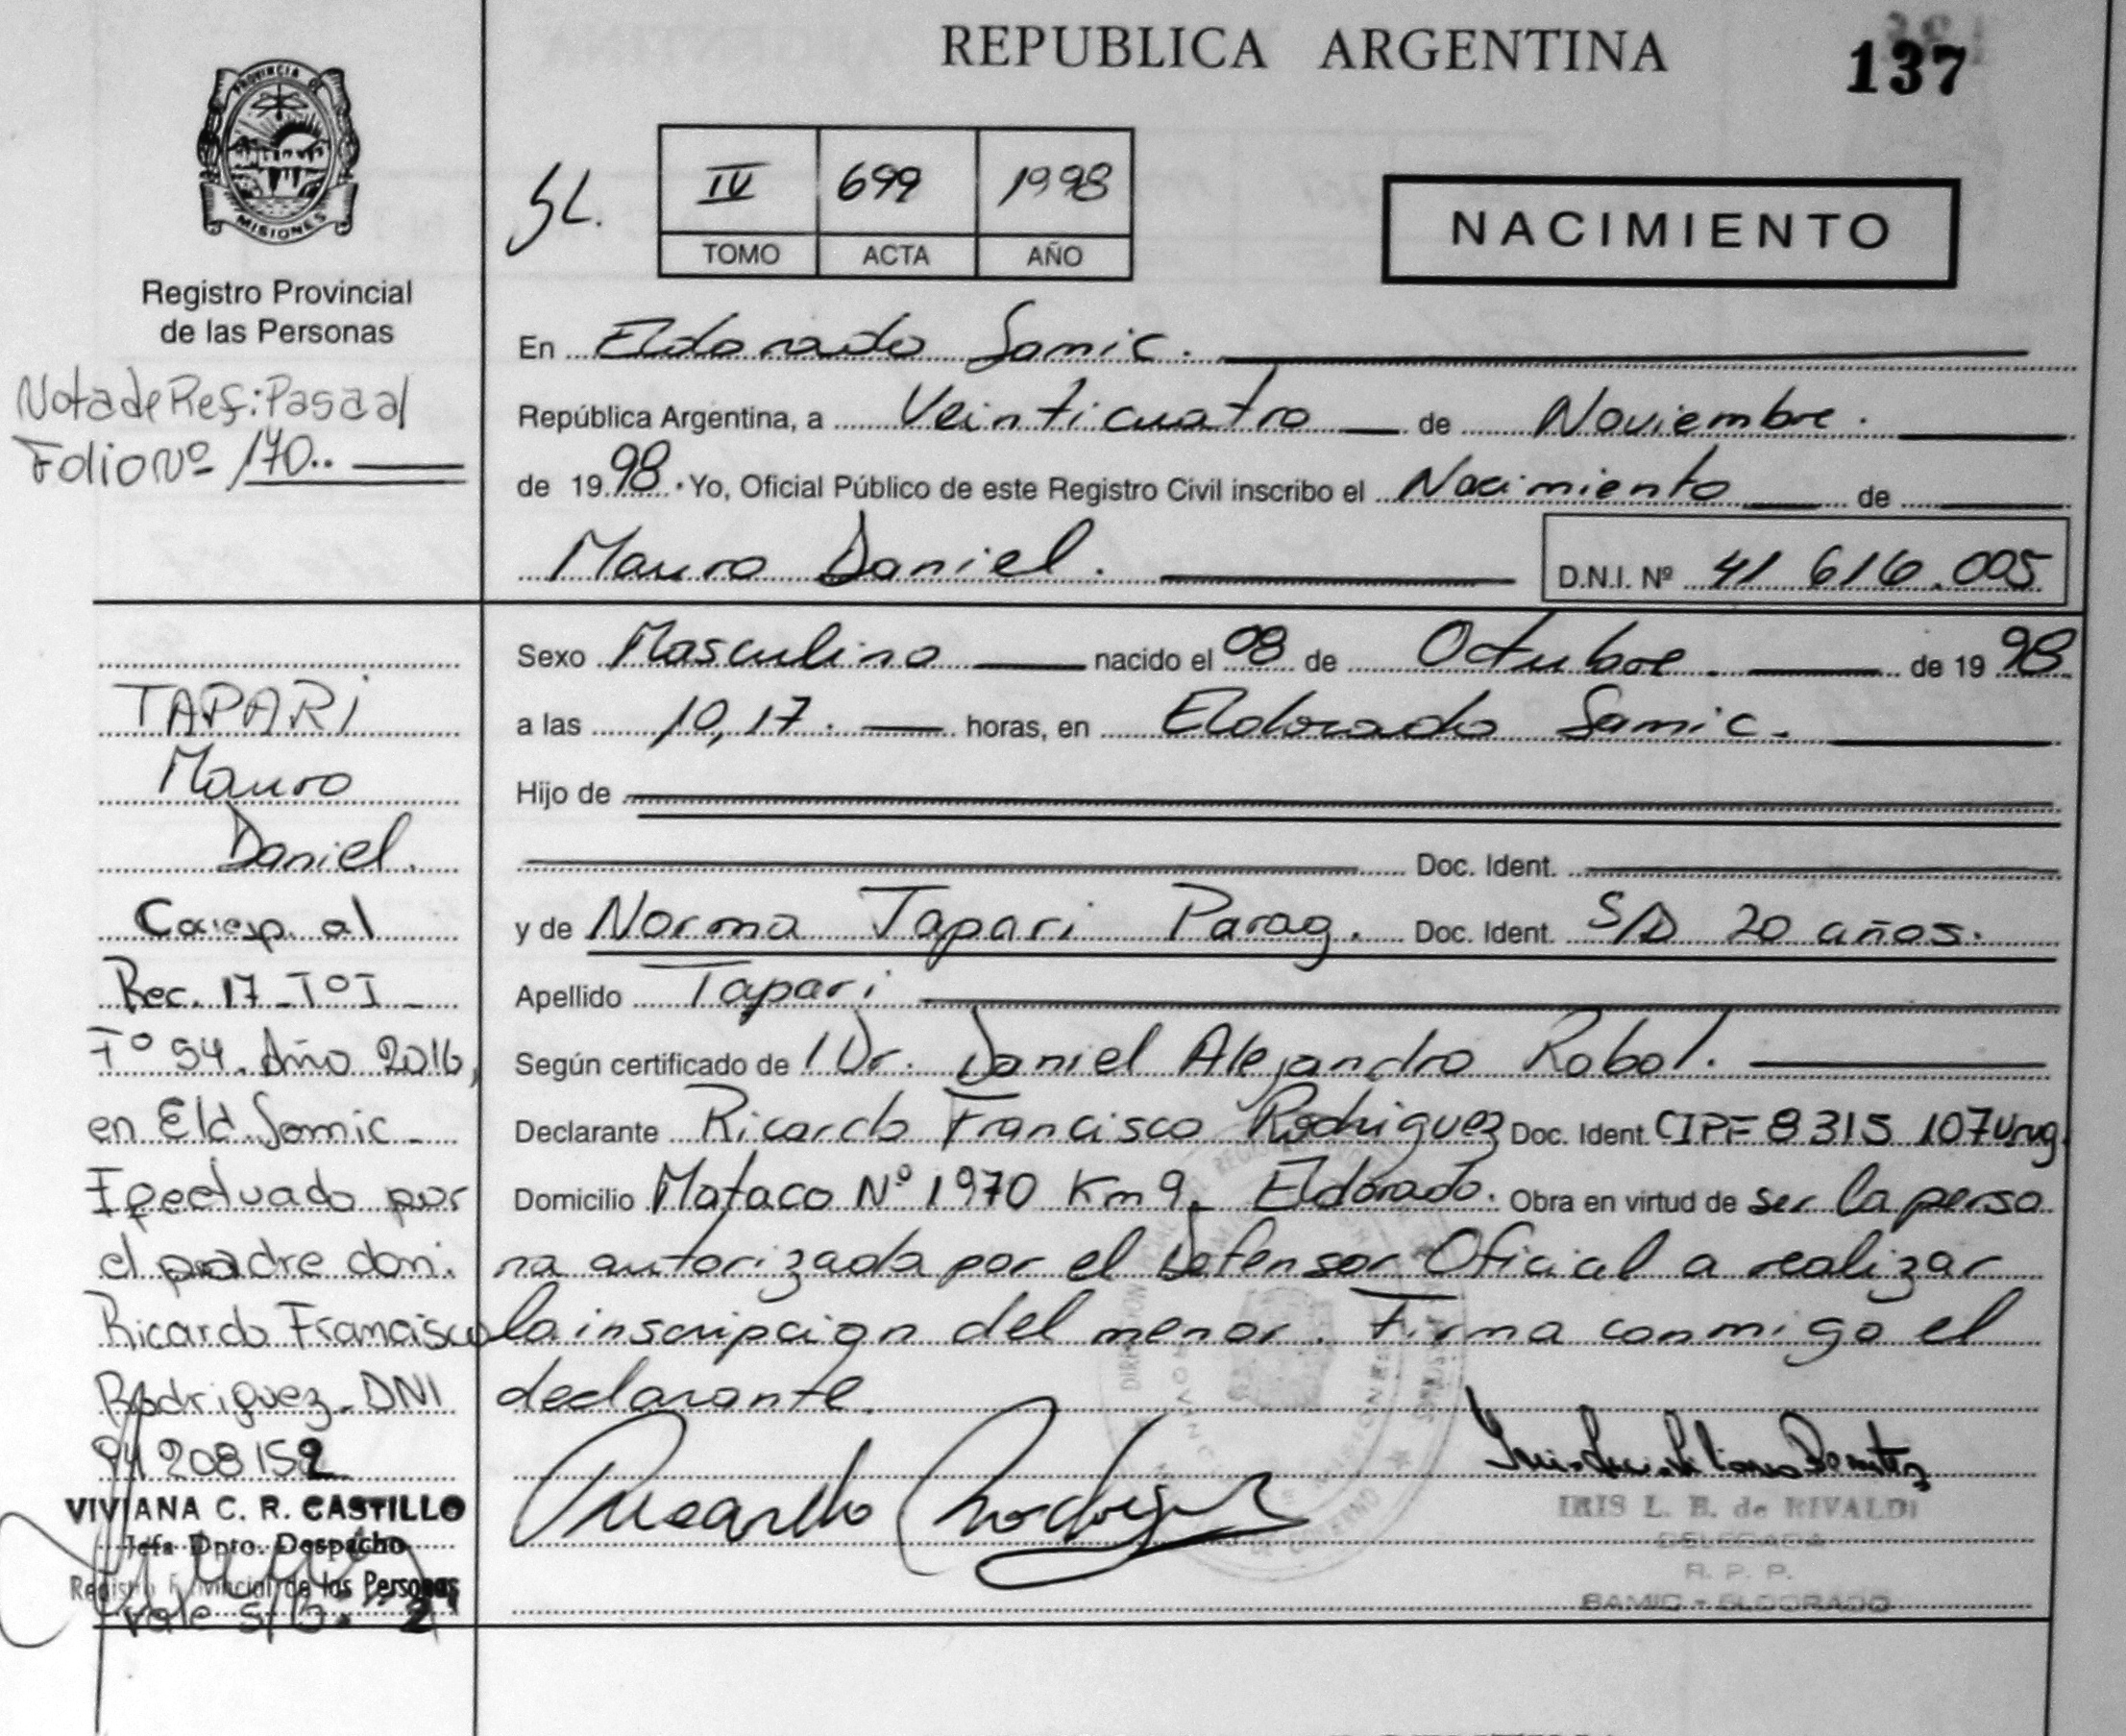 REPUBLICA ARGENTINA
137
PROVINCIA DE
MISIONES
Registro Provincial
de las Personas
Nota de Ref: Pasa al
Folio Nº 170..
SL.
IV 699 1998
TOMO ACTA AÑO
NACIMIENTO
En Eldorado Samic.
República Argentina, a Veinticuatro de Noviembre.
de 1998. Yo, Oficial Público de este Registro Civil inscribo el Nacimiento de
Mauro Daniel. D.N.I. Nº 41 616.005
Sexo Masculino nacido el 08 de Octubre. de 1998
a las 10,17. horas, en Eldorado Samic.
Hijo de
Doc. Ident.
y de Norma Tapari Parag. Doc. Ident. S/D 20 años.
Apellido Tapari
Según certificado de l Dr. Daniel Alejandro Robol.
Declarante Ricardo Francisco Rodriguez Doc. Ident. CIPF 8315 107 Urug.
Domicilio Mataco Nº 1970 Km 9. Eldorado. Obra en virtud de ser la perso
na autorizada por el Defensor Oficial a realizar
la inscripcion del menor. Firma conmigo el
declarante.
Ricardo Rodriguez
IRIS L. B. de RIVALDI
DELEGADA
R. P. P.
SAMIC - ELDORADO
TAPARI
Mauro
Daniel.
Coresp. al
Rec. 17 - Tº I -
Fº 94. Año 2016,
en Eld. Samic -
Efectuado por
el padre don:
Ricardo Francisco
Rodriguez - DNI
94 208 152
VIVIANA C. R. CASTILLO
Jefa Dpto. Despacho
Registro Provincial de las Personas
Vale S/B. 2